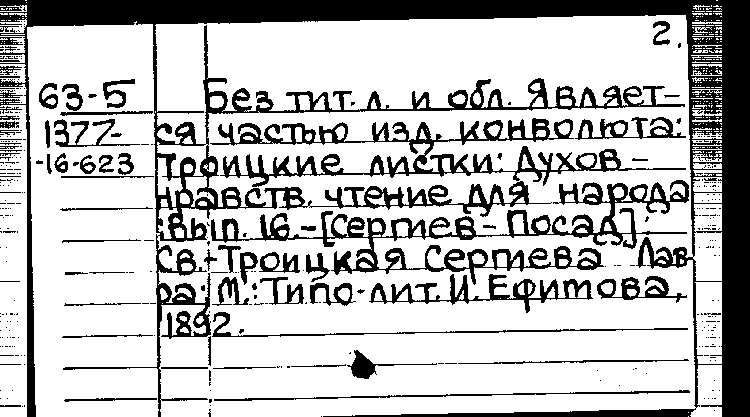 2.
63-5 Без тит. л. и обл. Являет-
1377- ся частью изд. конволюта:
-16-623 Троицкие листки: Духов.-
нравств. чтение для народа
:Вып. 16.-[Сергиев-Посад]:
Св.-Троицкая Сергиева Лав-
ра; М.: Типо-лит. И. Ефимова,
1892.